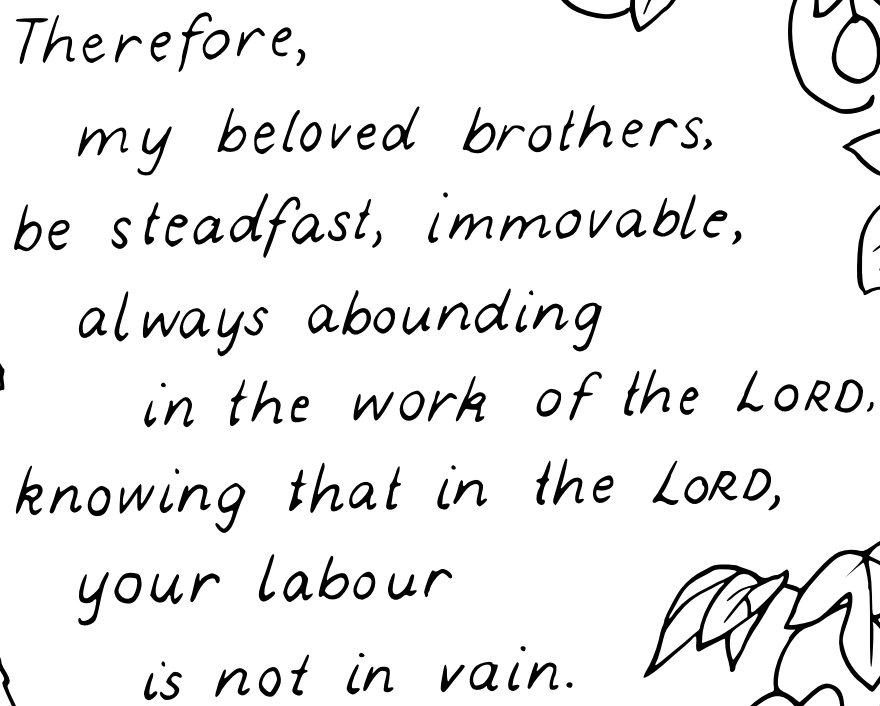 Therefore,
my beloved brothers,
be steadfast, immovable,
always abounding
in the work of the LORD,
knowing that in the LORD,
your labour
is not in vain.